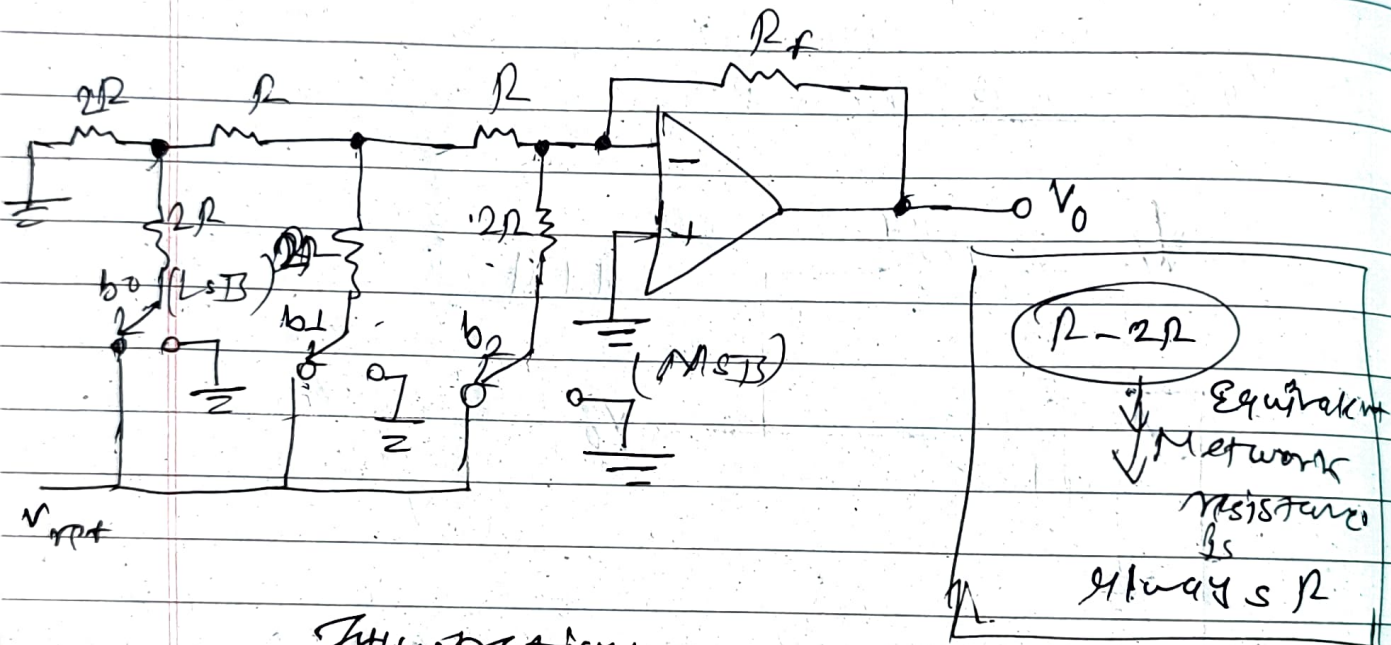 R f
2R
R
R
2R
2R
2R
b0 (LSB)
b1
b2
(MSB)
-
+
V0
Vref
R - 2R
Equivalent
Network
resistance
is
Always R